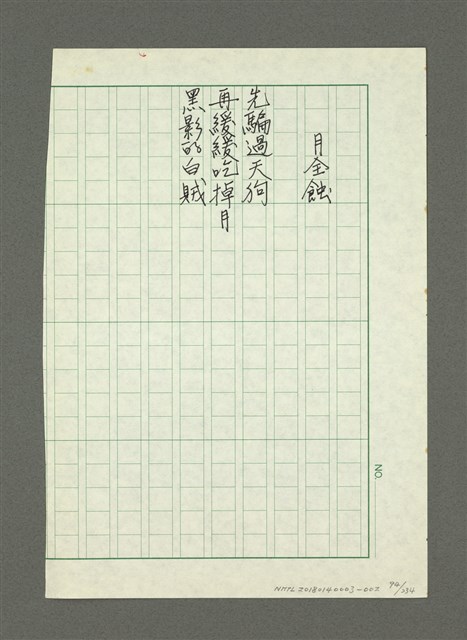 月全蝕
先騙過天狗
再緩緩吃掉月
黑影的白賊
NO.
NMTL20180140003-002
94/234